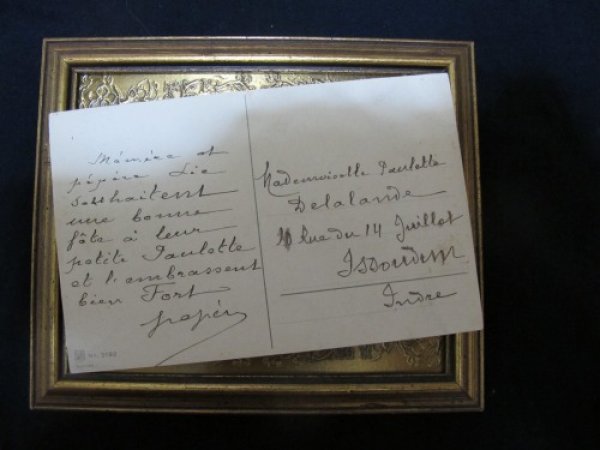 Mémère et
pépère Lie
souhaitent
une bonne
fête à leur
petite Paulette
et l'embrassent
bien Fort
pépère
Mademoiselle Paulette
Delalande
Rue du 14 Juillet
Issoudun
Indre